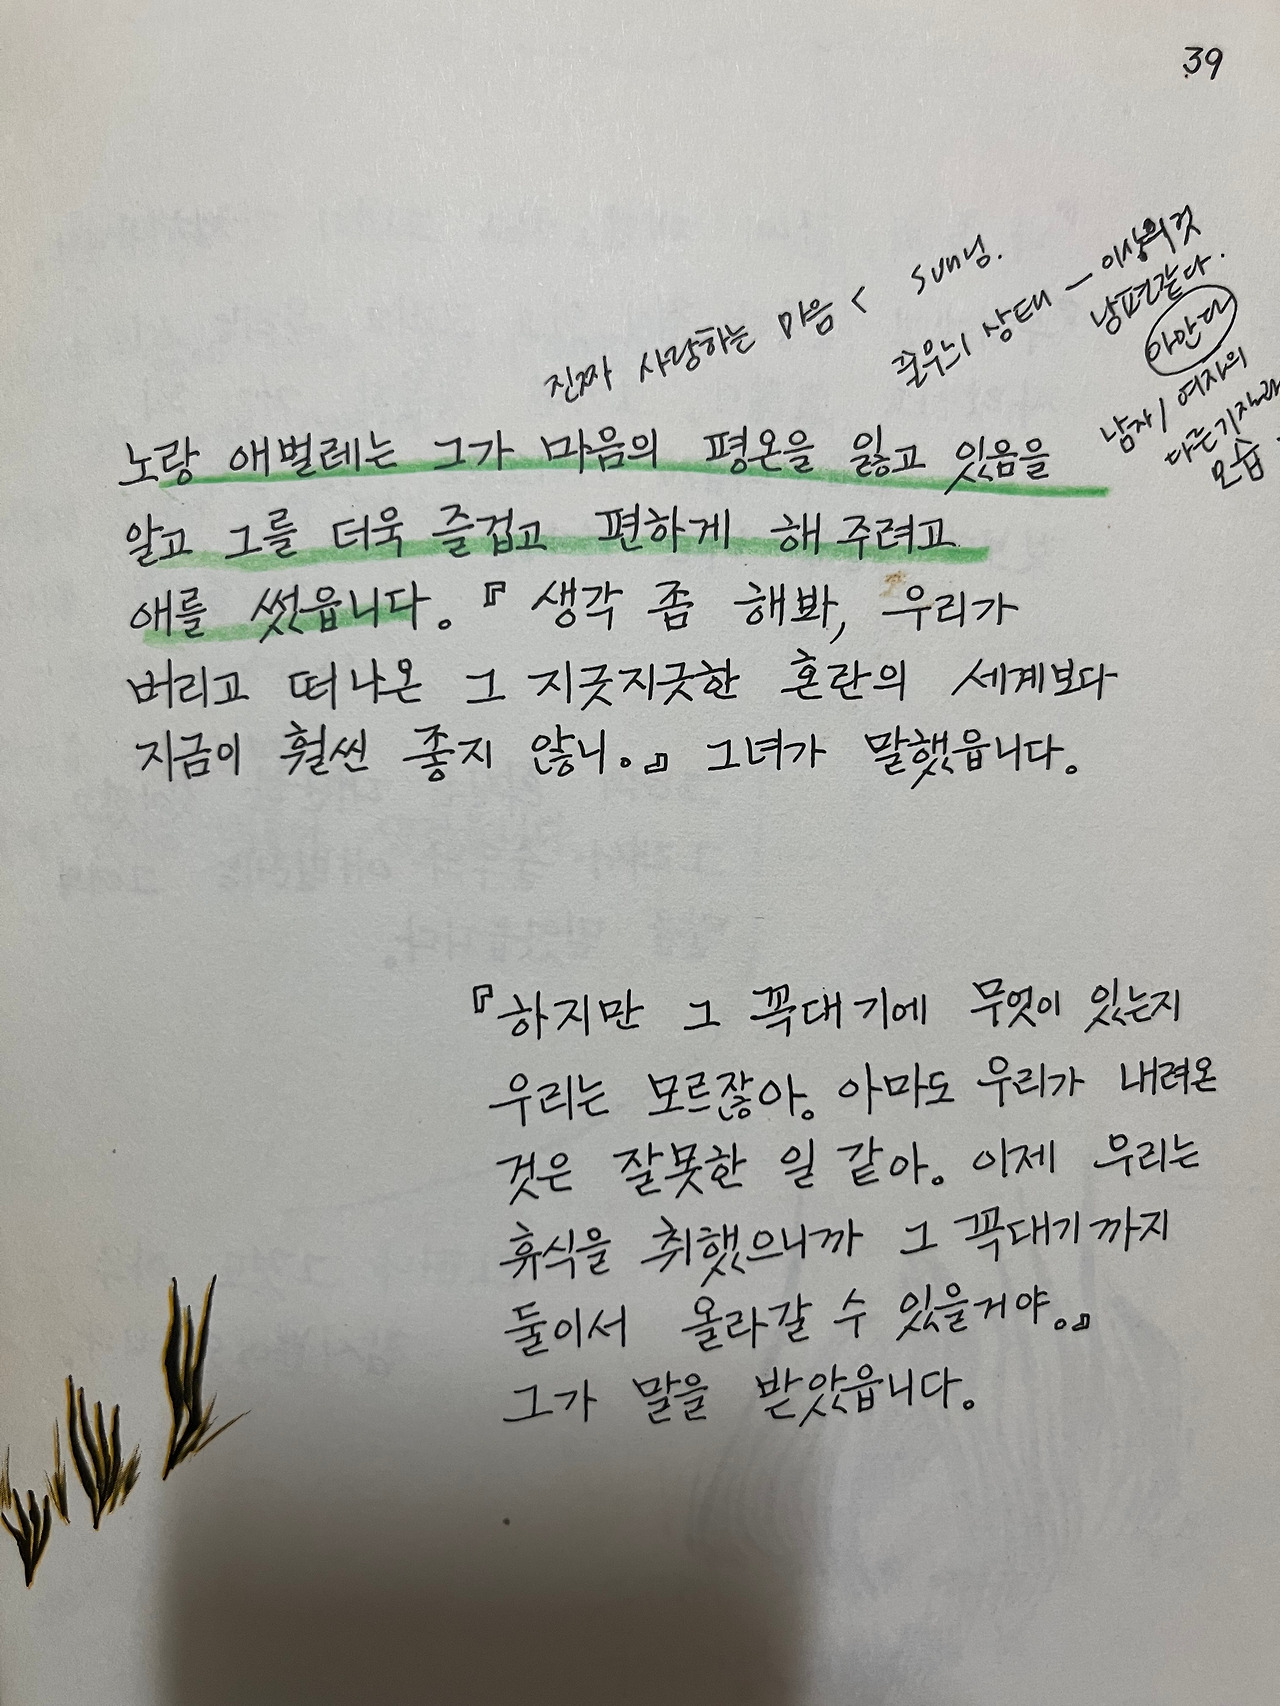 39
진짜 사랑하는 마음 < sun님.
상태 - 이상의것
남편같다.
아만다
남자/여자의
다른기질과
모습
노랑 애벌레는 그가 마음의 평온을 잃고 있음을
알고 그를 더욱 즐겁고 편하게 해 주려고
애를 썼읍니다. 『생각 좀 해봐, 우리가
버리고 떠나온 그 지긋지긋한 혼란의 세계보다
지금이 훨씬 좋지 않니.』 그녀가 말했읍니다.
『하지만 그 꼭대기에 무엇이 있는지
우리는 모르잖아. 아마도 우리가 내려온
것은 잘못한 일 같아. 이제 우리는
휴식을 취했으니까 그 꼭대기까지
둘이서 올라갈 수 있을거야.』
그가 말을 받았읍니다.